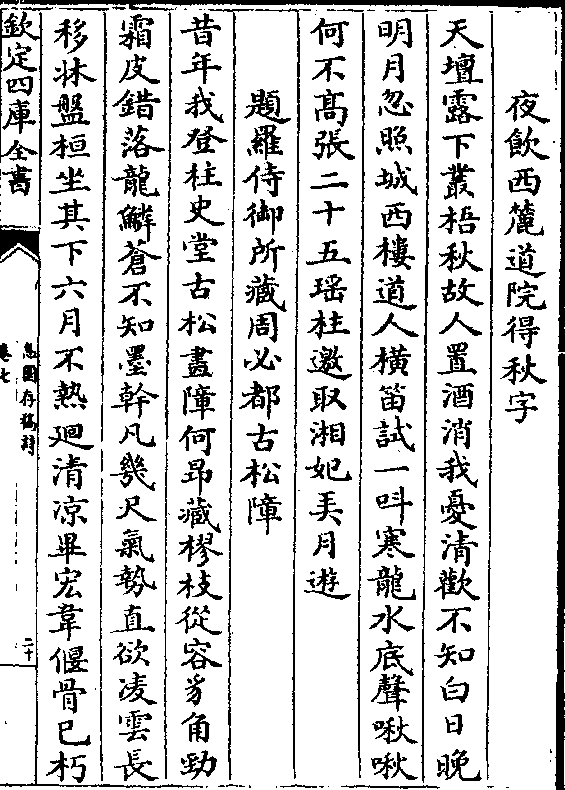 夜飲西麓道院得秋字
天壇露下叢梧秋故人置酒消我憂清歡不知白日晚
明月忽照城西樓道人橫笛試一呌寒龍水底聲啾啾
何不髙張二十五瑶柱邀取湘妃弄月遊
題羅侍御所藏周必都古松障
昔年我登柱史堂古松畫障何昂藏樛枝從容豸角勁
霜皮錯落龍鱗蒼不知墨幹凡幾尺氣勢直欲凌雲長
移牀盤桓坐其下六月不熱廻清凉畢宏韋偃骨已朽
欽定四庫全書
卷七
二十